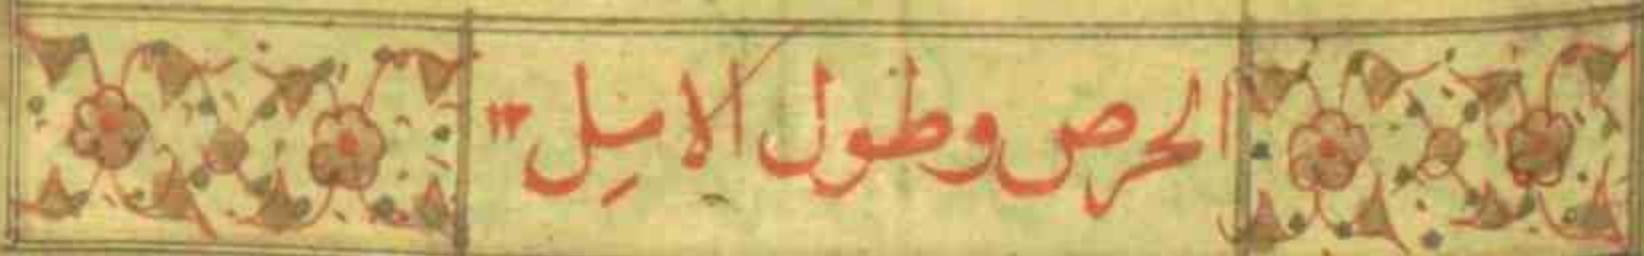 الحرص وطول الامل ١٣